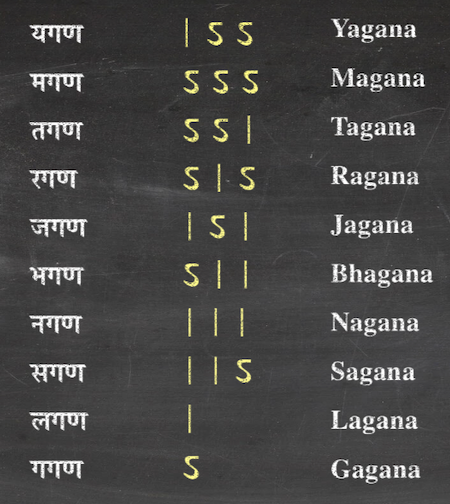 यगण | ऽ ऽ Yagana
मगण ऽ ऽ ऽ Magana
तगण ऽ ऽ | Tagana
रगण ऽ | ऽ Ragana
जगण | ऽ | Jagana
भगण ऽ | | Bhagana
नगण | | | Nagana
सगण | | ऽ Sagana
लगण | Lagana
गगण ऽ Gagana